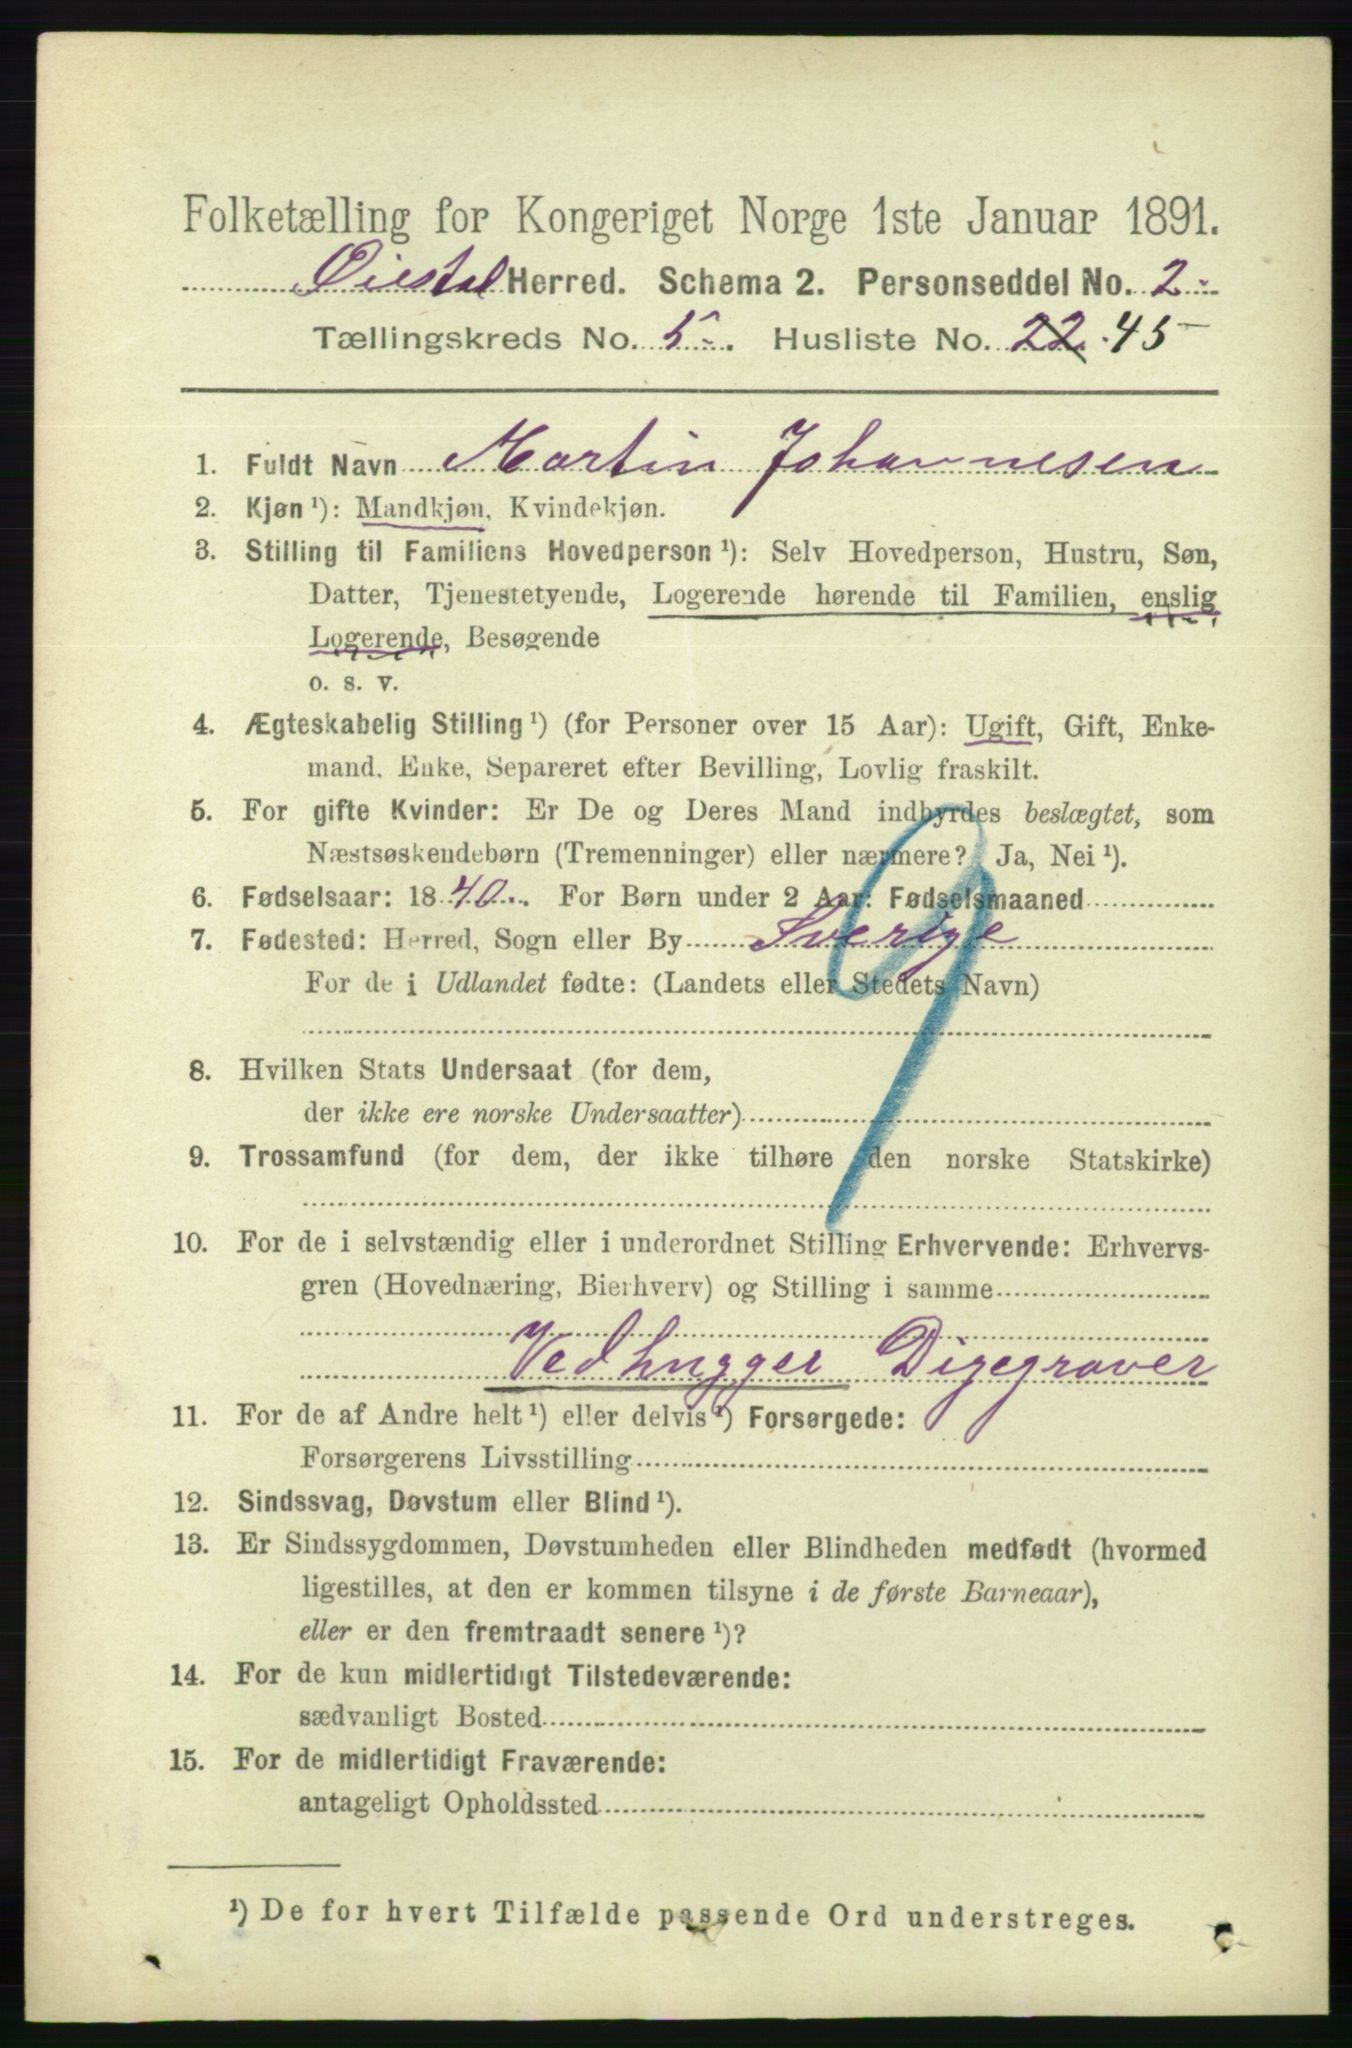 Folketælling for Kongeriget Norge 1ste Januar 1891.
Øiestad Herred. Schema 2. Personseddel No. 2
Tællingskreds No. 5. Husliste No. 22. 45
1. Fuldt Navn Martin Johannesen
2. Kjøn ¹): Mandkjøn, Kvindekjøn.
3. Stilling til Familiens Hovedperson ¹): Selv Hovedperson, Hustru, Søn,
Datter, Tjenestetyende, Logerende hørende til Familien, enslig
Logerende, Besøgende
o. s. v.
4. Ægteskabelig Stilling ¹) (for Personer over 15 Aar): Ugift, Gift, Enke-
mand, Enke, Separeret efter Bevilling, Lovlig fraskilt.
5. For gifte Kvinder: Er De og Deres Mand indbyrdes beslægtet, som
Næstsøskendebørn (Tremenninger) eller nærmere? Ja, Nei ¹).
6. Fødselsaar: 1840. For Børn under 2 Aar: Fødselsmaaned
7. Fødested: Herred, Sogn eller By Sverige
For de i Udlandet fødte: (Landets eller Stedets Navn)
9
8. Hvilken Stats Undersaat (for dem,
der ikke ere norske Undersaatter)
9. Trossamfund (for dem, der ikke tilhøre den norske Statskirke)
10. For de i selvstændig eller i underordnet Stilling Erhvervende: Erhvervs-
gren (Hovednæring, Bierhverv) og Stilling i samme
Vedhugger Digegraver
11. For de af Andre helt ¹) eller delvis ¹) Forsørgede:
Forsørgerens Livsstilling
12. Sindssvag, Døvstum eller Blind ¹).
13. Er Sindssygdommen, Døvstumheden eller Blindheden medfødt (hvormed
ligestilles, at den er kommen tilsyne i de første Barneaar),
eller er den fremtraadt senere ¹)?
14. For de kun midlertidigt Tilstedeværende:
sædvanligt Bosted
15. For de midlertidigt Fraværende:
antageligt Opholdssted
¹) De for hvert Tilfælde passende Ord understreges.